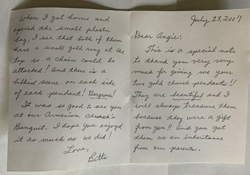 July 23, 2007
Dear Angie!
This is a special note
to thank you very very
much for giving me your
two gold church pendants!!!
They are beautiful and I
will always treasure them
because they were a gift
from you!! And you got
them as an inheritance
from our parents.
When I got home and
opened the small plastic
bag, I saw that both of them
have a small gold ring at the
top so a chain could be
attached! And there is a
behind seam on each side
of each pendant!
It was so good to see you
at our Armenian Church's
Banquet. I hope you enjoyed
it as much as we did!
Love,